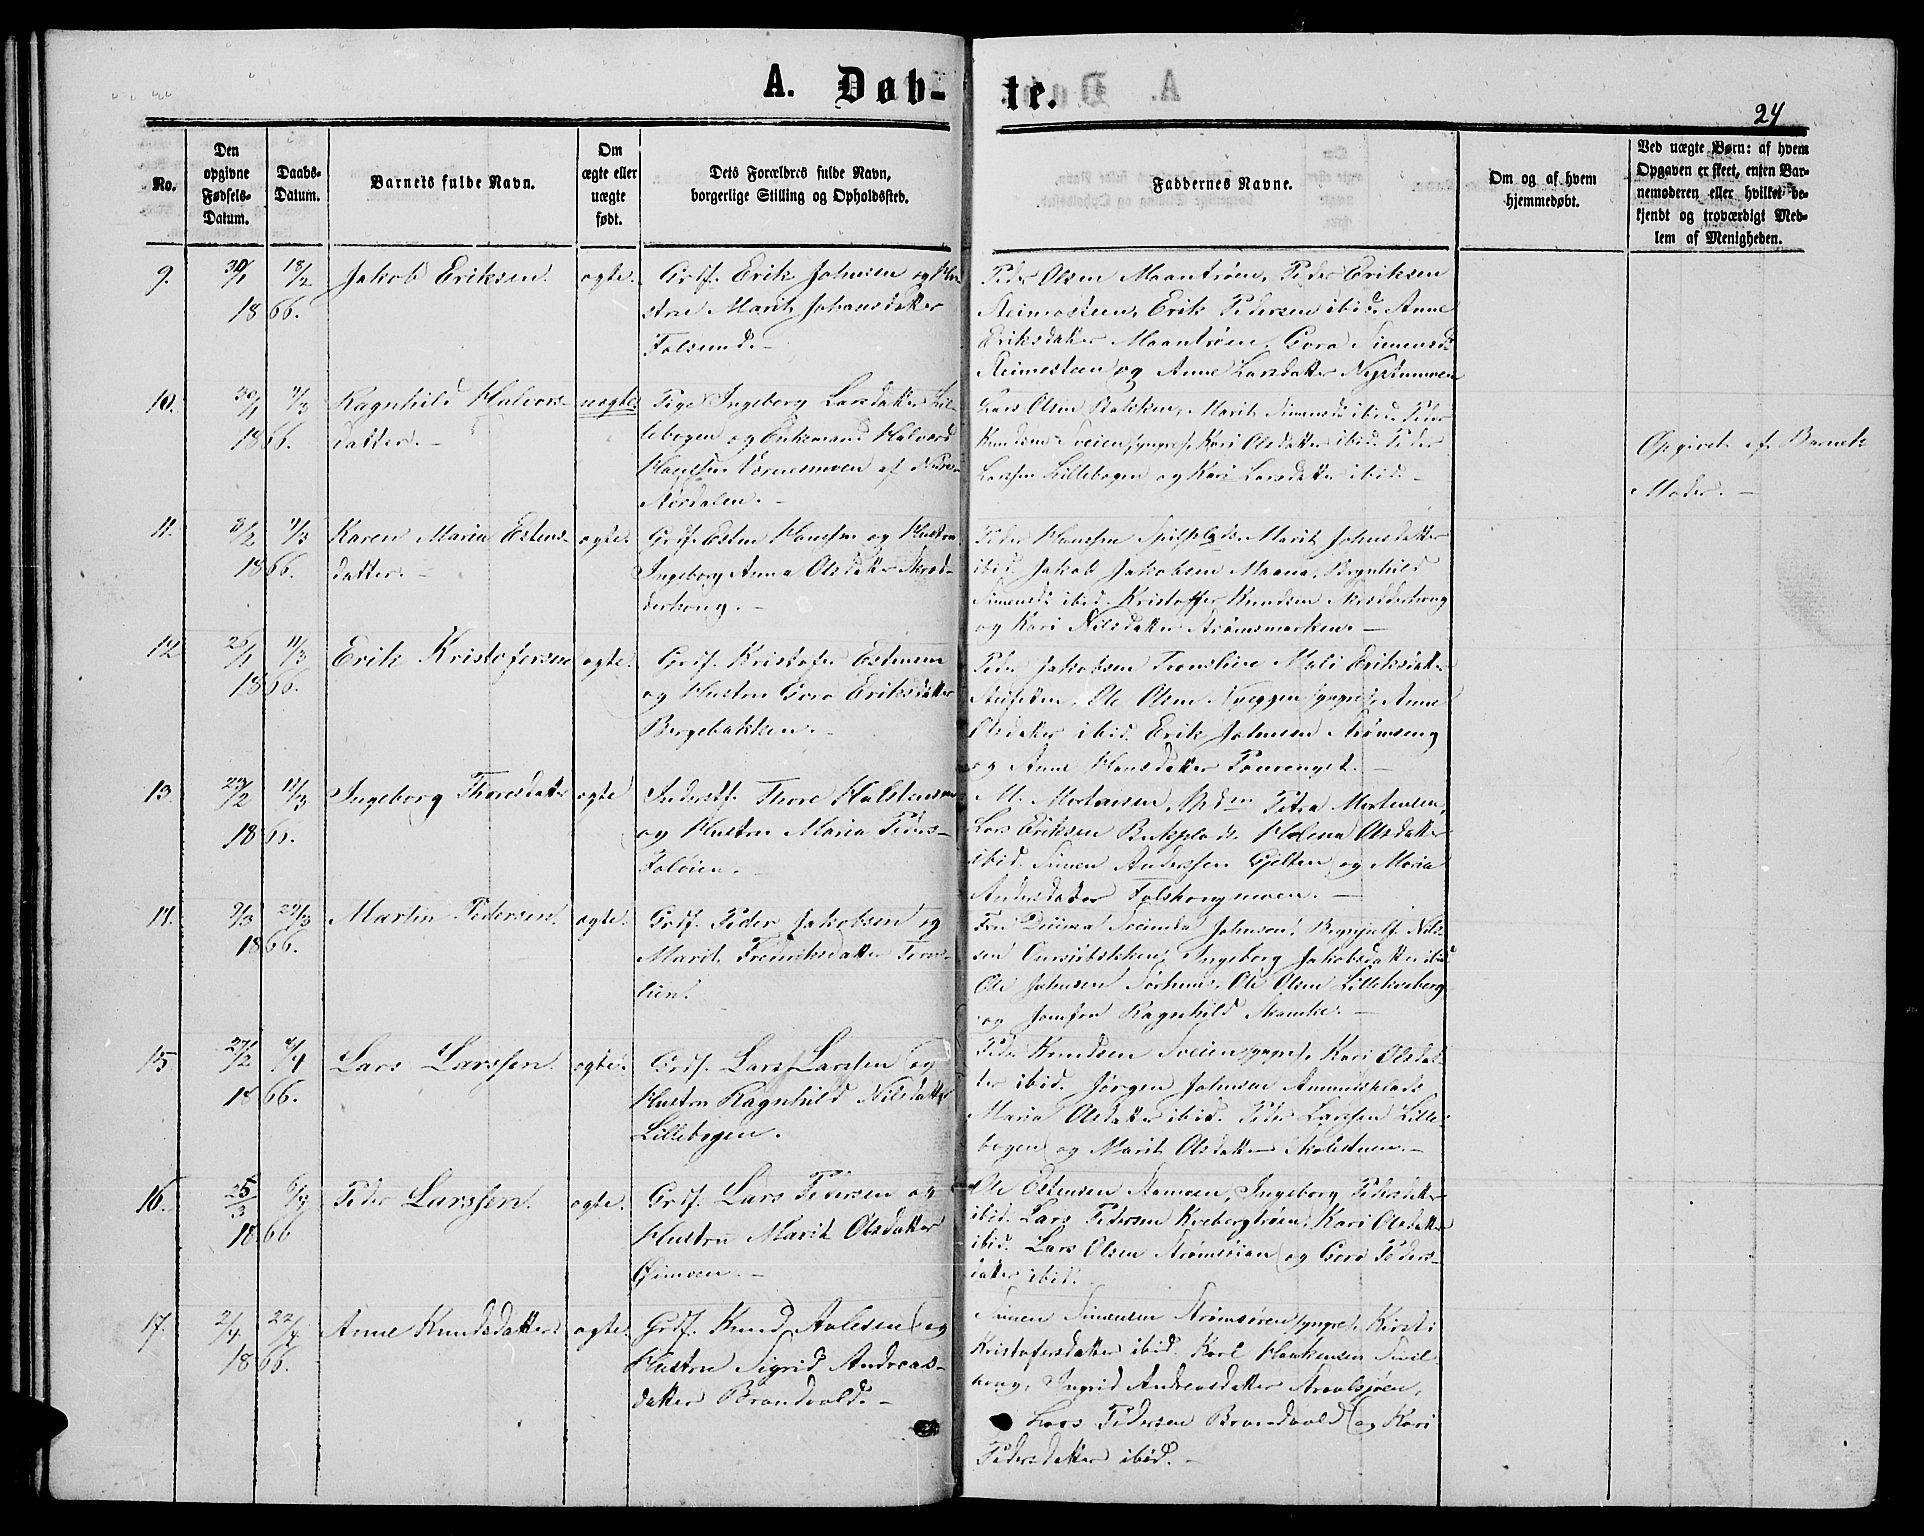 A. Døb-
te.
24
No.
Den
opgivne
Fødsels-
Datum.
Daabs-
Datum.
Barnets fulde Navn.
Om
ægte eller
uægte
født.
Dets Forældres fulde Navn,
borgerlige Stilling og Opholdssted.
Faddernes Navne.
Om og af hvem
hjemmedøbt.
Ved uægte Børn: af hvem
Opgaven er skeet, enten Bar-
nemoderen eller hvilket be-
kjendt og troværdigt Med-
lem af Menigheden.
9. 30/1 18/2 Jakob Eriksen. ægte. Grdf. Erik Johnsen og Hu-
1866. stru Marit Johansdatter
Folsund.
Peder Olsen Moantrøen, Peder Eriksen
Steimosteen, Erik Pedersen ibid. Anne
Eriksdatter Moantrøen, Goro Simensd.
Steimosteen og Anne Larsdatter Nystumoen
10. 30/1 11/3 Ragnhild Halvors- uægte. Pige Ingeborg Larsdatter Lil-
1866. datter. lebogen og Enkemand Halvord
Hansen Vornesmoen af
Aasdalen.
Lars Olsen Bakken, Marit Simensd. ibid. Peder
Knudsen Sveien yngre, Kari Olsdatter ibid. Peder
Larssen Lillebogen og Kari Larsdatter ibid.
Opgivet af Barnets
Moder.
11. 8/2 11/3 Karen Maria Estens- ægte. Grdf. Esten Hanssen og Hustru
1866. datter. Ingeborg Anna Olsdatter Skræd-
derhoug.
Peder Hanssen Spilsplads. Marit Johnsdatter
ibid. Jakob Jakobsen Moana, Brynhild
Simensd. ibid. Kristoffer Knudsen Skrædderhoug
og Kari Nilsdatter Strømsmarken.
12 26/1 11/3 Erik Kristofersen ægte. Grdf. Kristofer Estensen
1866. og Hustru Goro Eriksdatter
Bergebakken.
Peder Jakobsen Tronslien Mali Eriksdatter
Ole Olsen yngre, Anne
Olsdatter ibid. Erik Johnsen Strømseng
og Anne Hansdatter
13. 11/3 Ingeborg Thoresdatter ægte Inderstf. Thore Halstensen
1866. og Hustru Maria Peders-
Foløien.
M. Mortensen, Petra Mortensen,
Lars Eriksen Bukplads. Helena Olsdatter
ibid. Simen Anderssen Gjelten og Maria
Andersdatter Folshougmoen.
14. 9/3 Martin Pedersen. ægte. Grdf. Peder Jakobsen og
1866. Marit Fredriksdatter Trons-
lien.
Fru Johnsen, Brynjulf Nil-
sen Ingeborg Jakobsdatter ibid
Ole Johnsen Ole Olsen Lillekveberg
og Jomfru Ragnhild
15 27/2 Lars Larssen. ægte. Grdf. Lars Larssen og
1866. Hustru Ragnhild Nilsdatter
Lillebogen.
Peder Knudsen Sveien yngre, Kari Olsdat-
ter ibid. Jørgen Johnsen Amundsplads
Maria Olsdatter ibid. Peder Larssen Lille-
bogen og Marit Olsdatter Skolestuen.
16. 25/3 Peder Larssen. ægte. Grdf. Lars Pedersen og
1866 Hustru Marit Olsdatter
Øimoen.
Ole Estensen Ingeborg Pedersdatter
ibid. Lars Pedersen Kvebergtrøen, Kari Olsdatter
ibid. Lars Olsen Strømsøien og Goro Peders-
datter ibid.
17. 2/4 22/4 Anne Knudsdatter. ægte. Grdf. Knud Avlesen og
1866. Hustru Sigrid Andreas-
datter Brandvold.
Simen Simensen Strømsøren yngre, Kirsti
Kristofersdatter ibid. Karl Haakensen
houg, Ingrid Andreasdatter
Lars Pedersen Brandvold og Kari
Pedersdatter ibid.